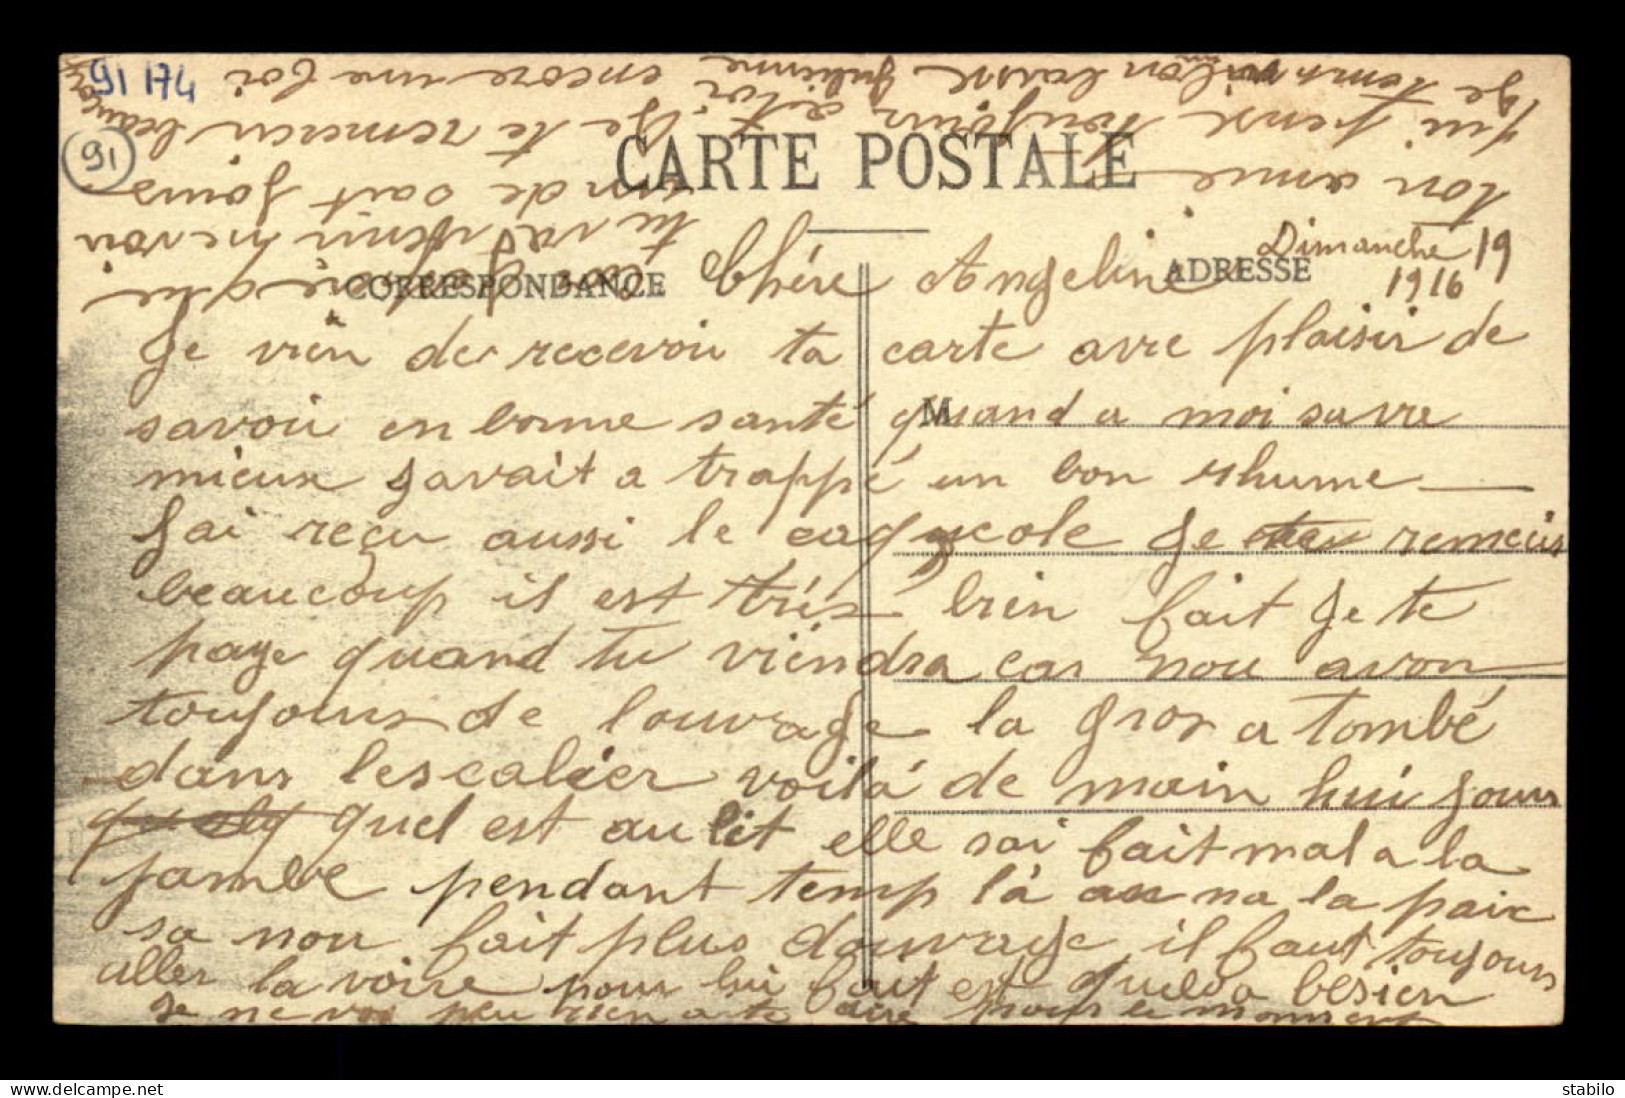 91 174
91
CARTE POSTALE
CORRESPONDANCE
ADRESSE
M
Dimanche 19
1916
Chére Angeline
Je vien de recevoir ta carte avec plaisir de
savoir en bonne santé quand a moi sa va
mieux javait a trappé un bon rhume
Jai reçu aussi le cagucole je remercis
beaucoup il est trés bien fait Je te
paye quand tu viéndra car nou avon
toujours de louvrage la gros a tombé
dans lescalier voilá de main hui jours
quel est au lit elle sai fait mal a la
jambe pendant temp lá na la paix
sa nou fait plus douvrage il faut toujours
aller la voire pour lui faut est quelva bésien
Je ne vos peu rien a te dire pour le moment
tu va venir me voir
un de sait jours
Je te remerci beaucoup
encore une foi
Je temr Julienne
qui pense toujour a toi
ton amie